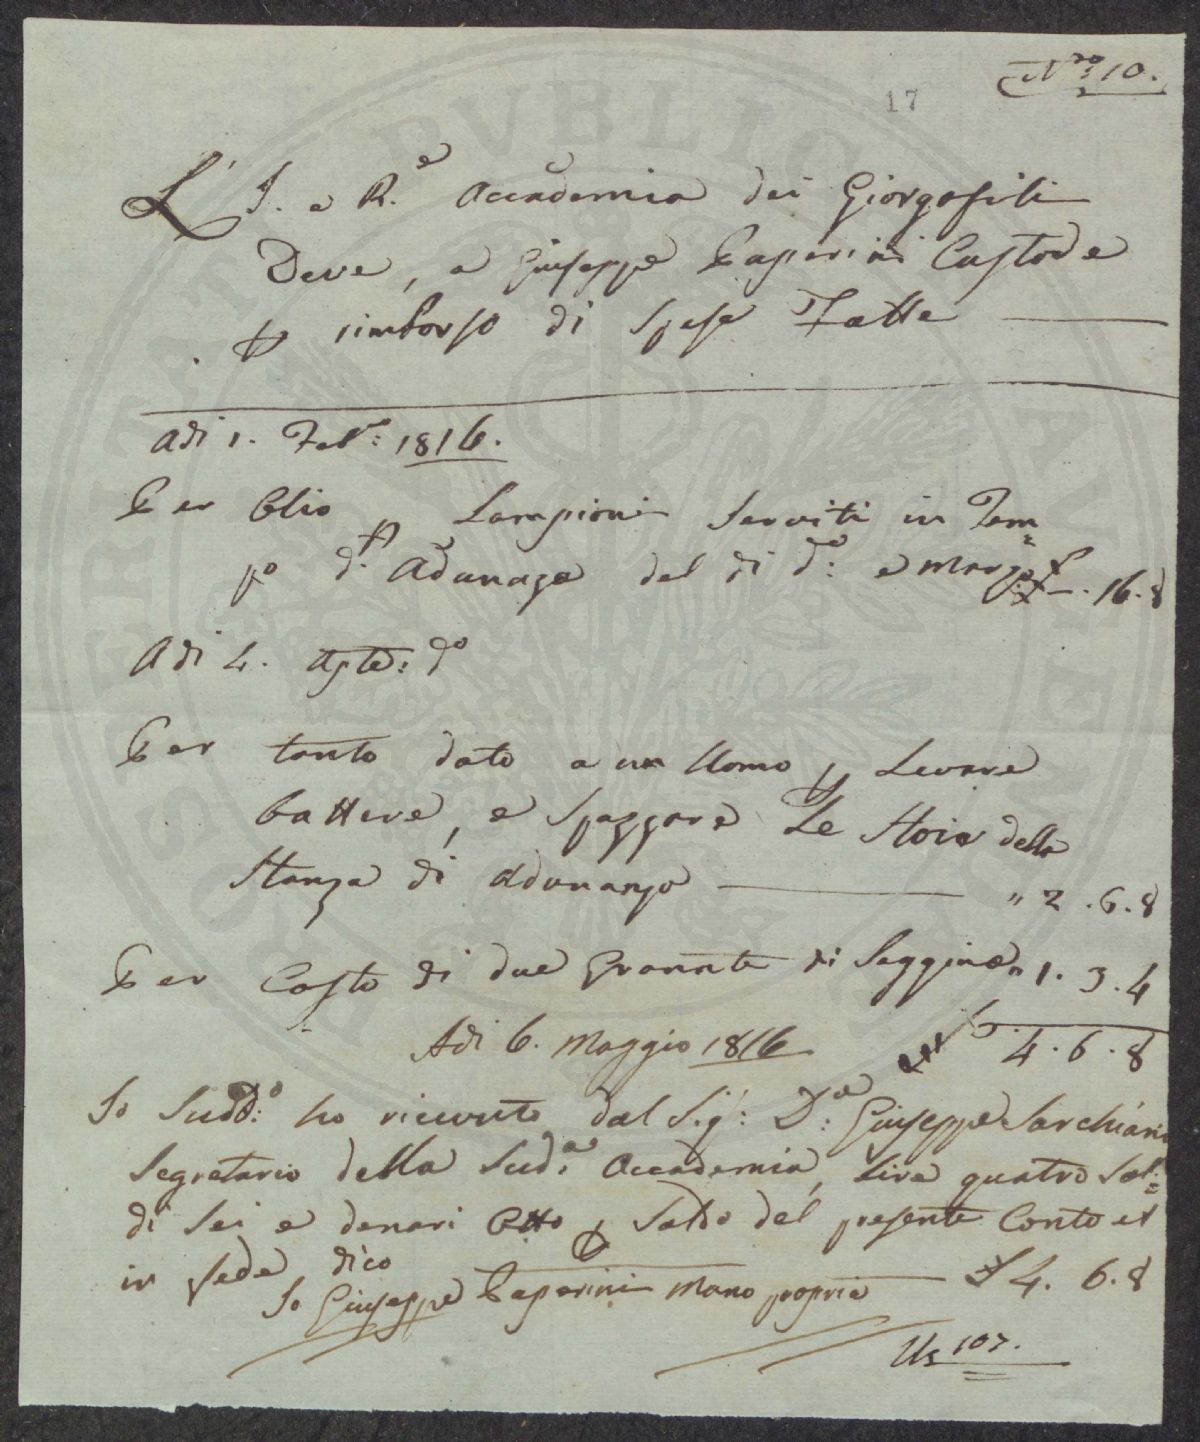 Nro: 10.
17
L' I. e R.e Accademia dei Giorgofili
Deve, a Giuseppe Paperini Custode
p rimborso di Spese Fatte
Adi 1. Feb.: 1816.
Per Olio p Lampioni Serviti in Tem=
po d.a Adunanze del di d.o: e Marzo £ —. 16. 8
Adi 4. do
Per tanto dato a un Uomo p Levare
battere, e Spazzare Le Stoie della
Stanza di Adunanza " 2. 6. 8
Per Costo di due Granate di Saggina " 1. 3. 4
4. 6. 8
Adi 6. Maggio 1816
Io Sudd:o ho ricevuto dal Sig: D:e Giuseppe Sarchiani
Segretario della Sud.a Accademia, Lire quattro Sol=
di Sei e denari Otto p Saldo del presente Conto et
in fede dico £ 4. 6. 8
Io Giuseppe Paperini mano propria
Us 107.